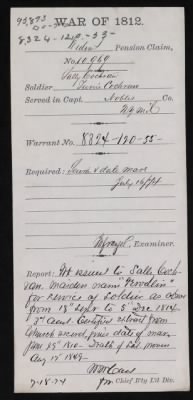 95,873
8324-120-55
WAR OF 1812.
Widow Pension Claim,
No. 10969
Sally Cochran
Soldier Cochran
Served in Capt. Nobles Co.
Mil
Warrant No. 8324-120-55
Required: & date marr
July 16/74
, Examiner.
Report: Wt issued to Sally Coch-
ran maiden name
for service of soldier as above
from 18" Sept to 5" Dec 1814
3d act. Certified extract from
Church record gives date of mar.
1810. Death of sol. proven
Aug 15" 1849.
for Chief B'ty L'd Div.
7-18-74